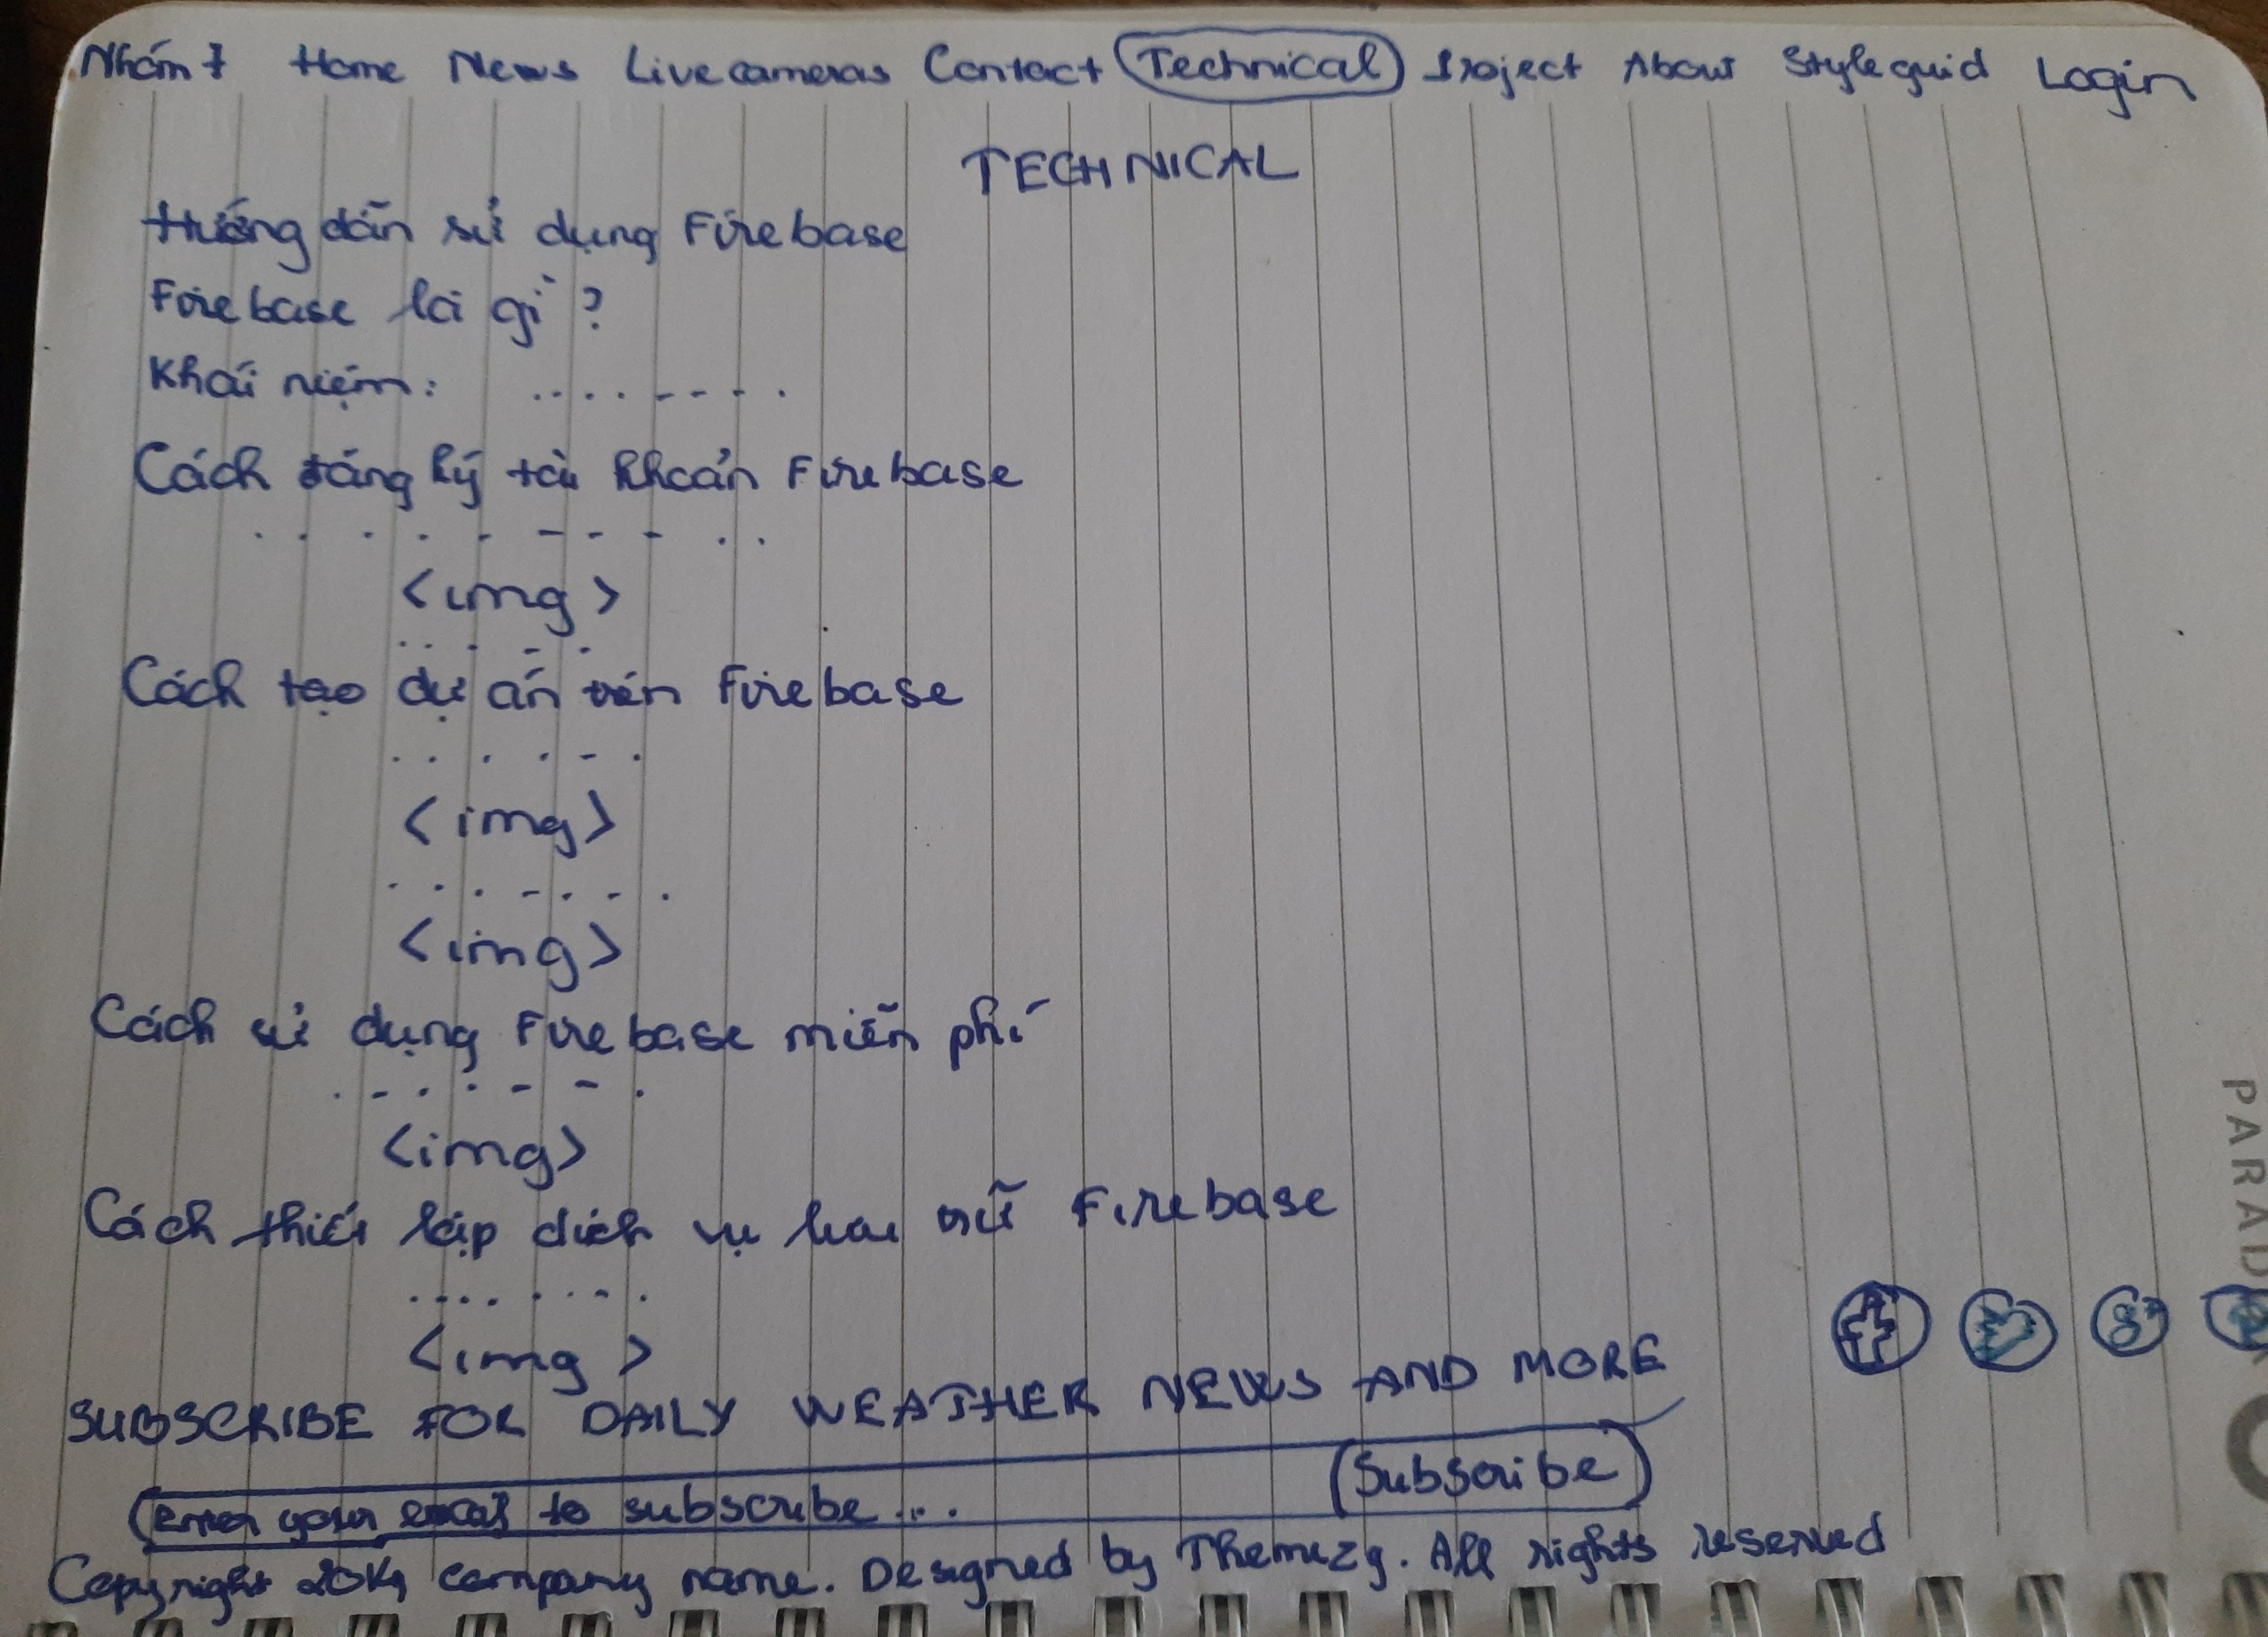 Nhóm 7 Home News Live cameras Contact Technical Project About Styleguid Login
TECHNICAL
Hướng dẫn sử dụng Firebase
Firebase là gì ?
Khái niệm: ........
Cách đăng ký tài khoản Firebase
..........
<img>
.....
Cách tạo dự án trên Firebase
......
<img>
.......
<img>
Cách sử dụng Firebase miễn phí
.......
<img>
Cách thiết lập dịch vụ lưu trữ Firebase
........
<img>
SUBSCRIBE FOR DAILY WEATHER NEWS AND MORE
Enter your email to subscribe... Subscribe
Copyright company name. Designed by Themezy. All rights reserved
PARAD